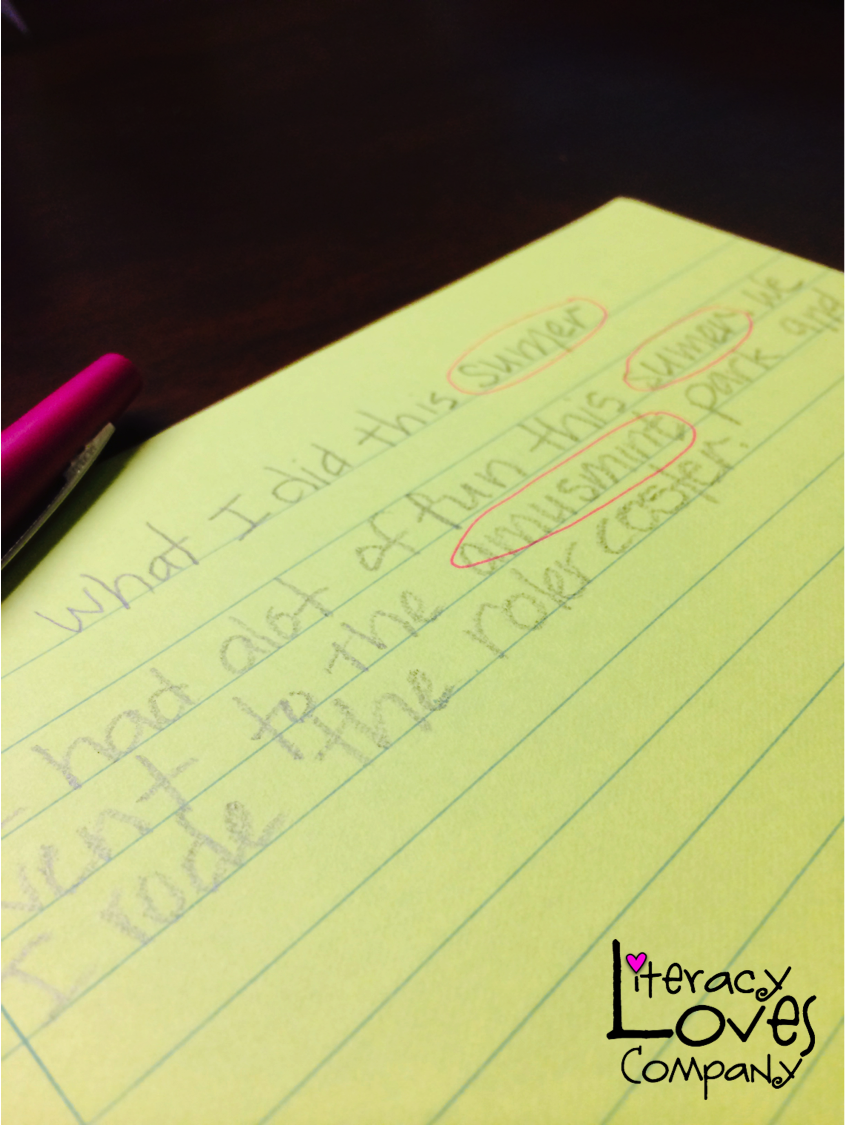 what I did this sumer
I had alot of fun this sumer we
went to the amusmint park and
I rode the roler coaster.
Literacy
Loves
Company